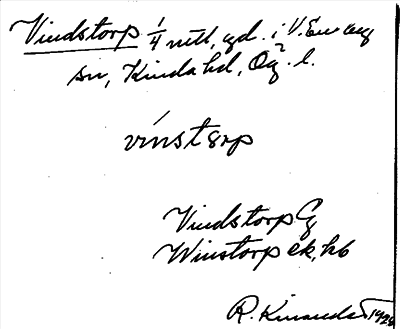 Vindstorp 1/4 mtl, gd. i V. Eneby
sn, Kinda hd, Ög. l.
vinstərp
Vindstorp G
Winstorp ek, hb
R. Kinander 1928